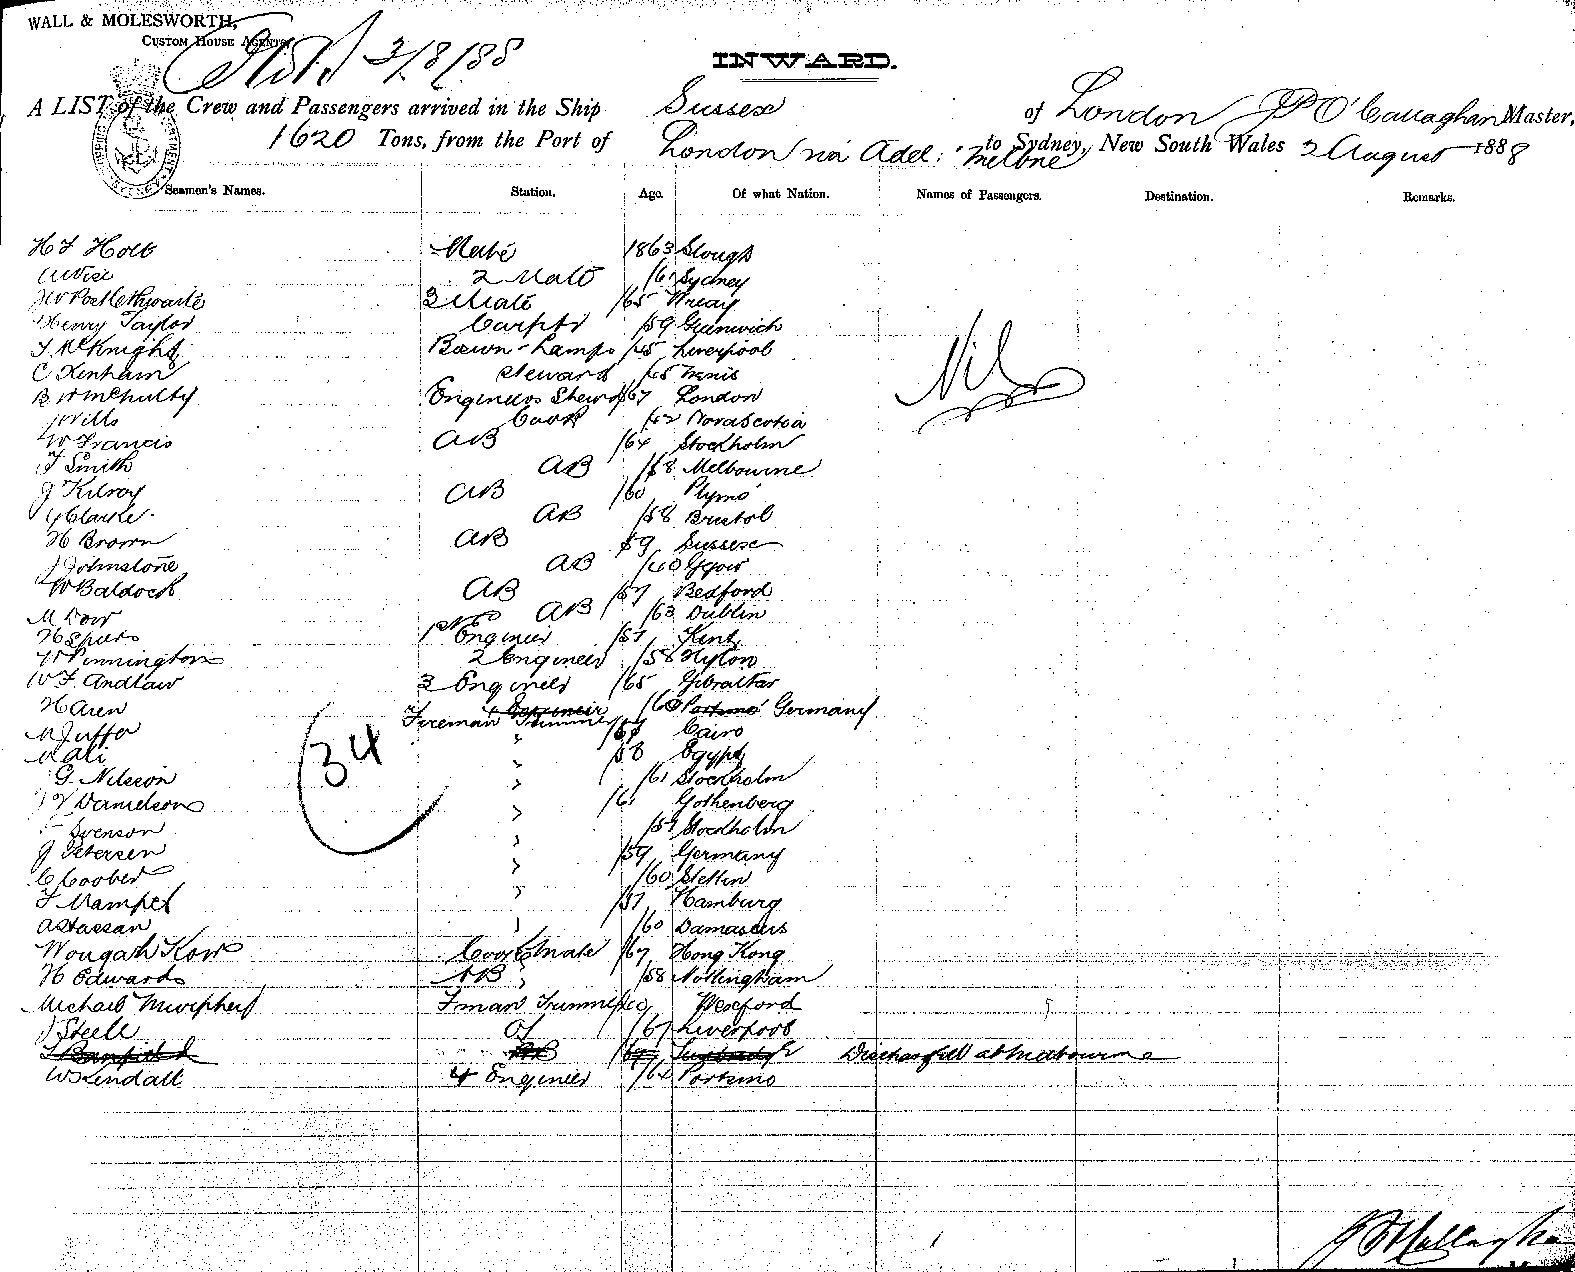 WALL & MOLESWORTH,
CUSTOM HOUSE AGENTS.
3/8/88
INWARD.
A LIST of the Crew and Passengers arrived in the Ship Sussex of London J P O'Callaghan Master,
1620 Tons, from the Port of London via Adel: Melbne to Sydney, New South Wales 2 August 1888
Seamen's Names. Station. Age. Of what Nation. Names of Passengers. Destination. Remarks.
H F Holt Mate 1863 Slough
A Wise 2 Mate /61 Sydney
J W Postlethwaite 3 Mate /65 Wreay
Henry Taylor Carptr /59 Greenwich
Nil
J McKnight Boswn - Lamps /45 Liverpool
C Denham Steward /45
Engineers Stewd /67 London
J Wills Cook /62 Nova Scotia
W Francis AB /64 Stockholm
J Smith AB /68 Melbourne
J Kilroy AB /60 Plymo
J Clarke AB /58 Bristol
H Brown AB 59 Sussex
J Johnstone AB /40 Ggow
W Baldock AB /57 Bedford
M Dow AB /63 Dublin
H Spurs 1st Engineer /57 Kent
W Pinnington 2 Engineer /58 Hylton
W F Andlaw 3 Engineer /65 Gibraltar
H Aren Fireman Trimmer /60 Portsmo Germany
M Juffa " Cairo
M Ali " 58 Egypt
34
G. Nilsson " /61 Stockholm
Danielson " /61 Gothenberg
Svenson " /57 Stockholm
J Petersen " /59 Germany
C Coober " /60 Stettin
J Mampel " /57 Hamburg
A Hassan " /60 Damascus
Wougah Kow Cooks Mate /67 Hong Kong
H Edwards AB " /58 Nottingham
Michael Murphey Fman Trimmer /60 Wexford
J Steele OS /67 Liverpool
AB Discharged at Melbourne
W Kendall 4 Engineer /64 Portsmo